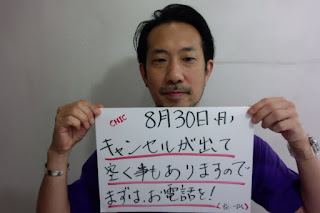 CHIC
8月30日(月)
キャンセルが出て
空く事もありますので
まずは、お電話を!